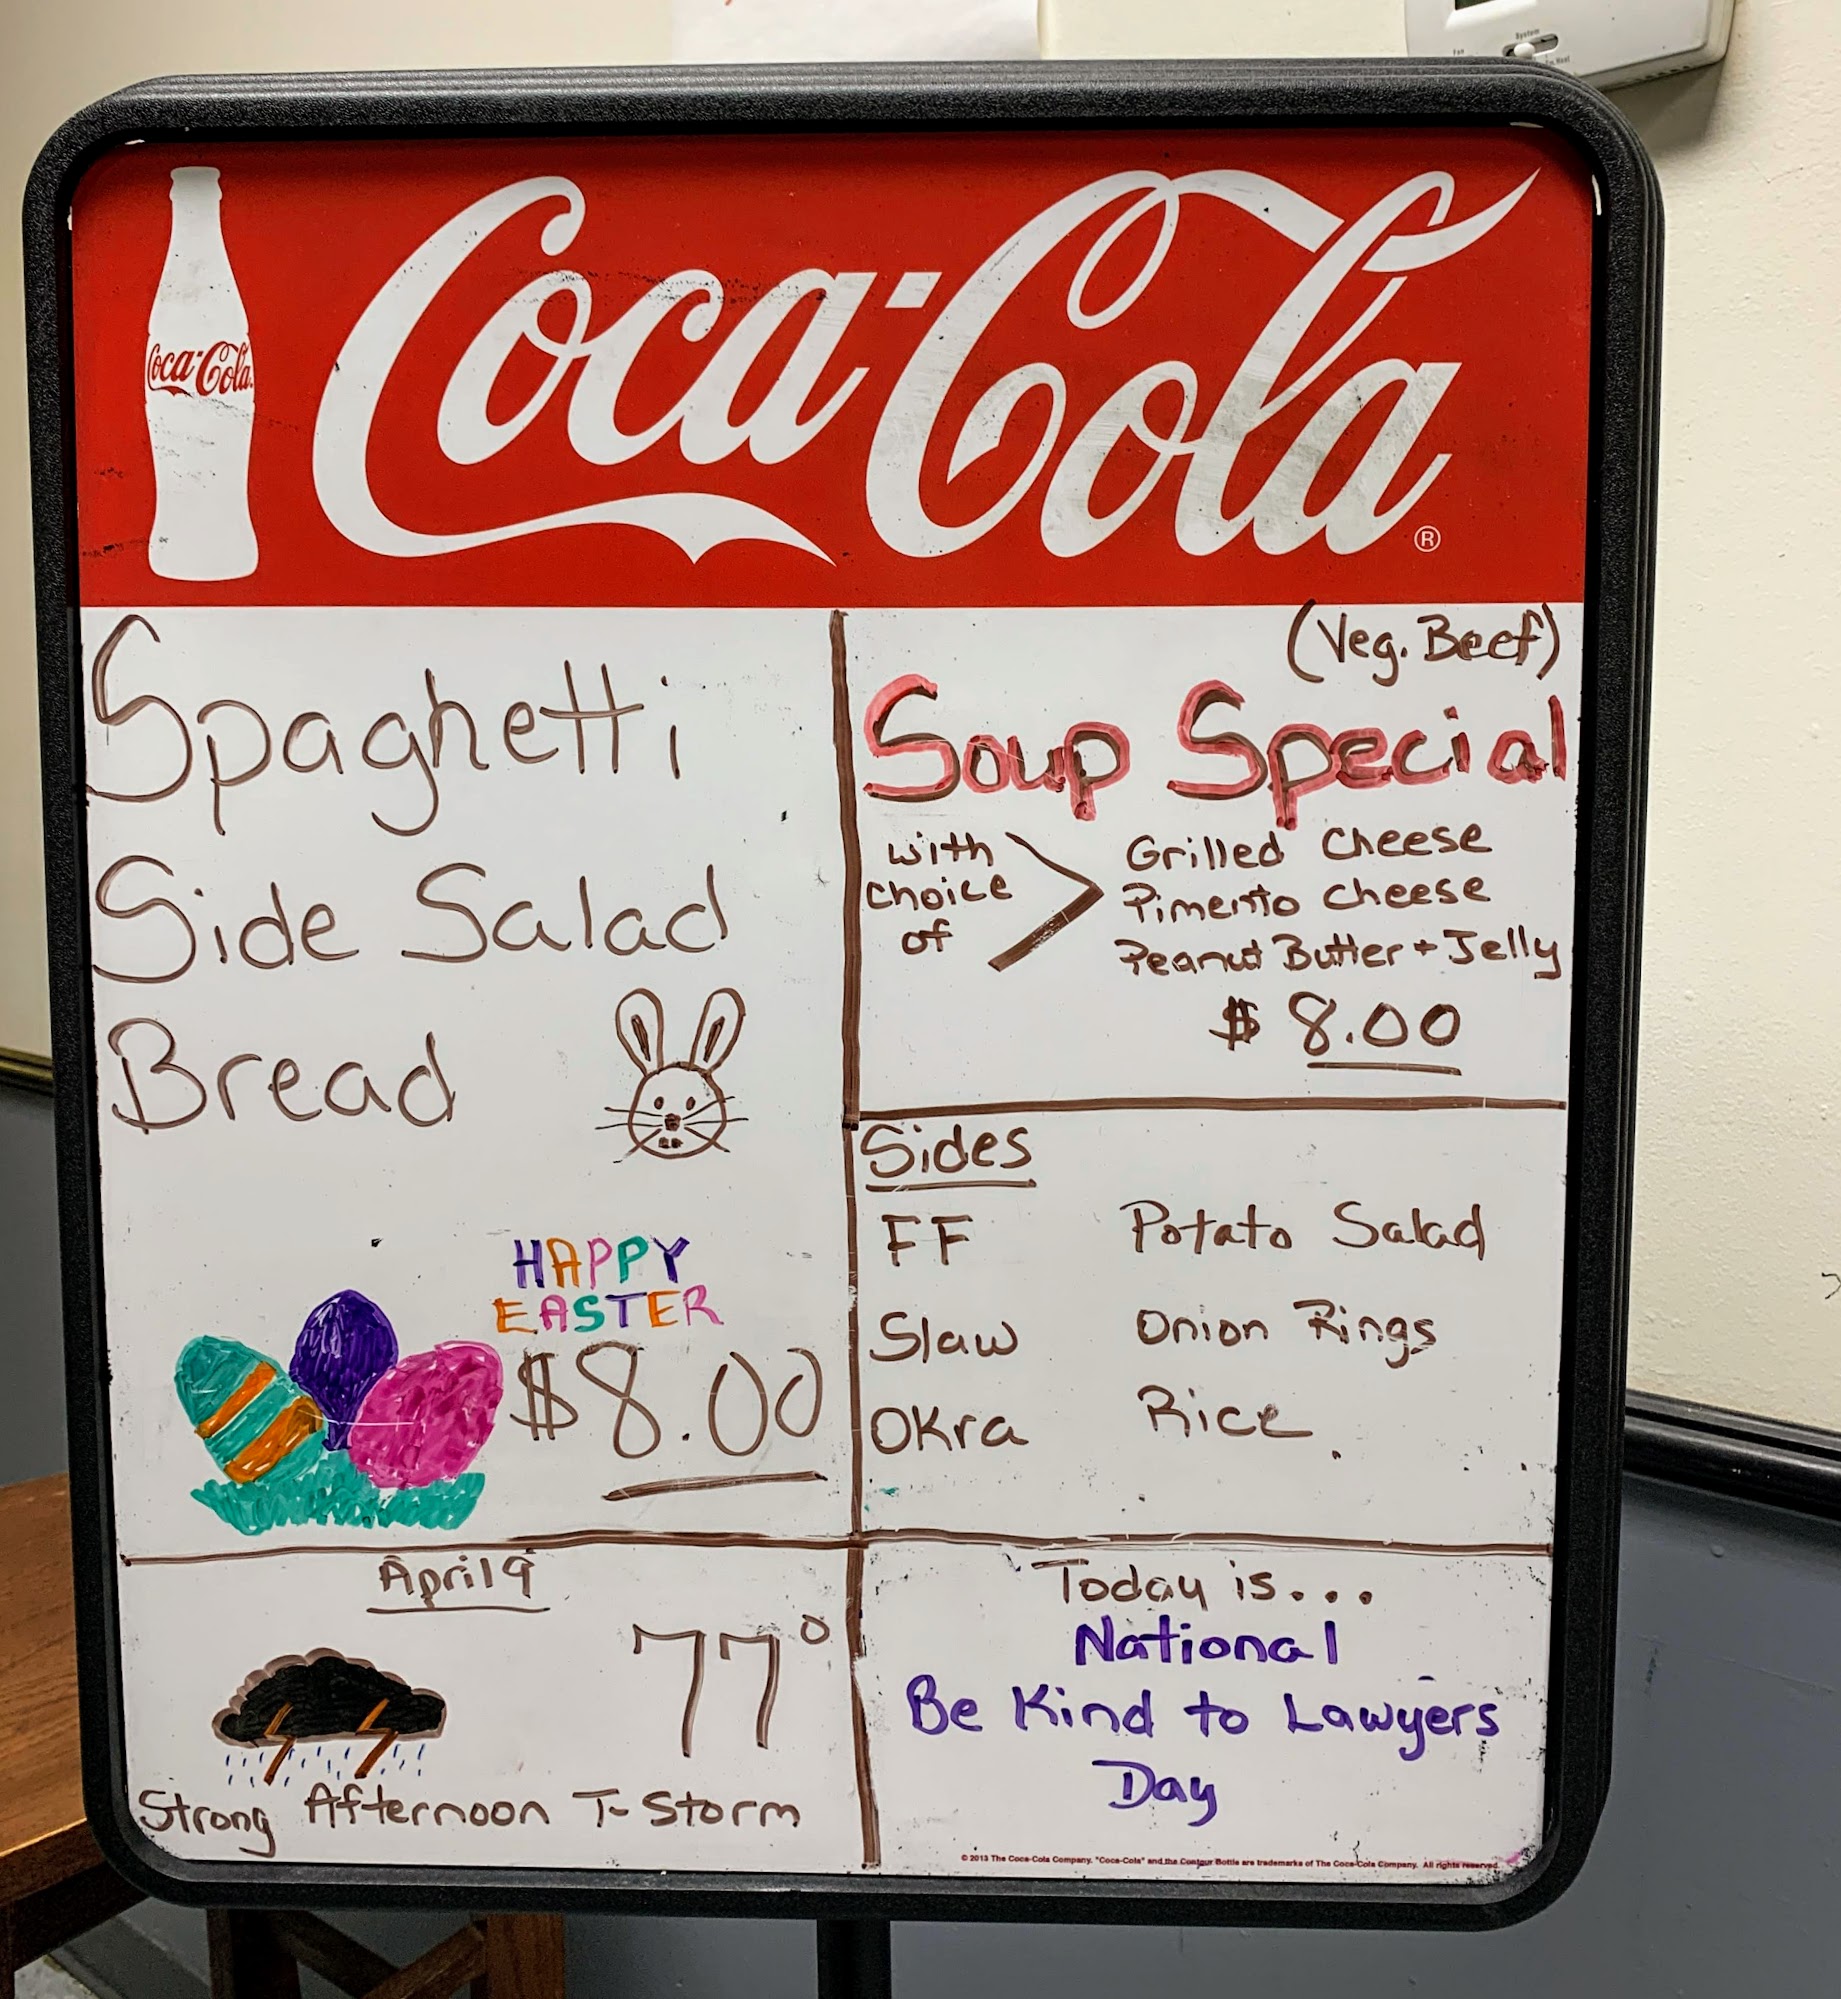 Coca-Cola
Coca-Cola®
Spaghetti
Side Salad
Bread
HAPPY
EASTER
$8.00
(Veg. Beef)
Soup Special
with
choice
of
Grilled Cheese
Pimento Cheese
Peanut Butter + Jelly
$ 8.00
Sides
FF
Slaw
OKra
Potato Salad
Onion Rings
Rice
April 9
77°
Strong Afternoon T-Storm
Today is...
National
Be Kind to Lawyers
Day
© 2013 The Coca-Cola Company. "Coca-Cola" and the Contour Bottle are trademarks of The Coca-Cola Company. All rights reserved.
System
Fan